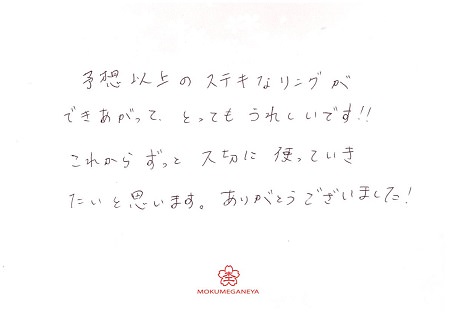 予想以上のステキなリングが
できあがって、とってもうれしいです!!
これからずっと大切に使っていき
たいと思います。ありがとうございました!
MOKUMEGANEYA